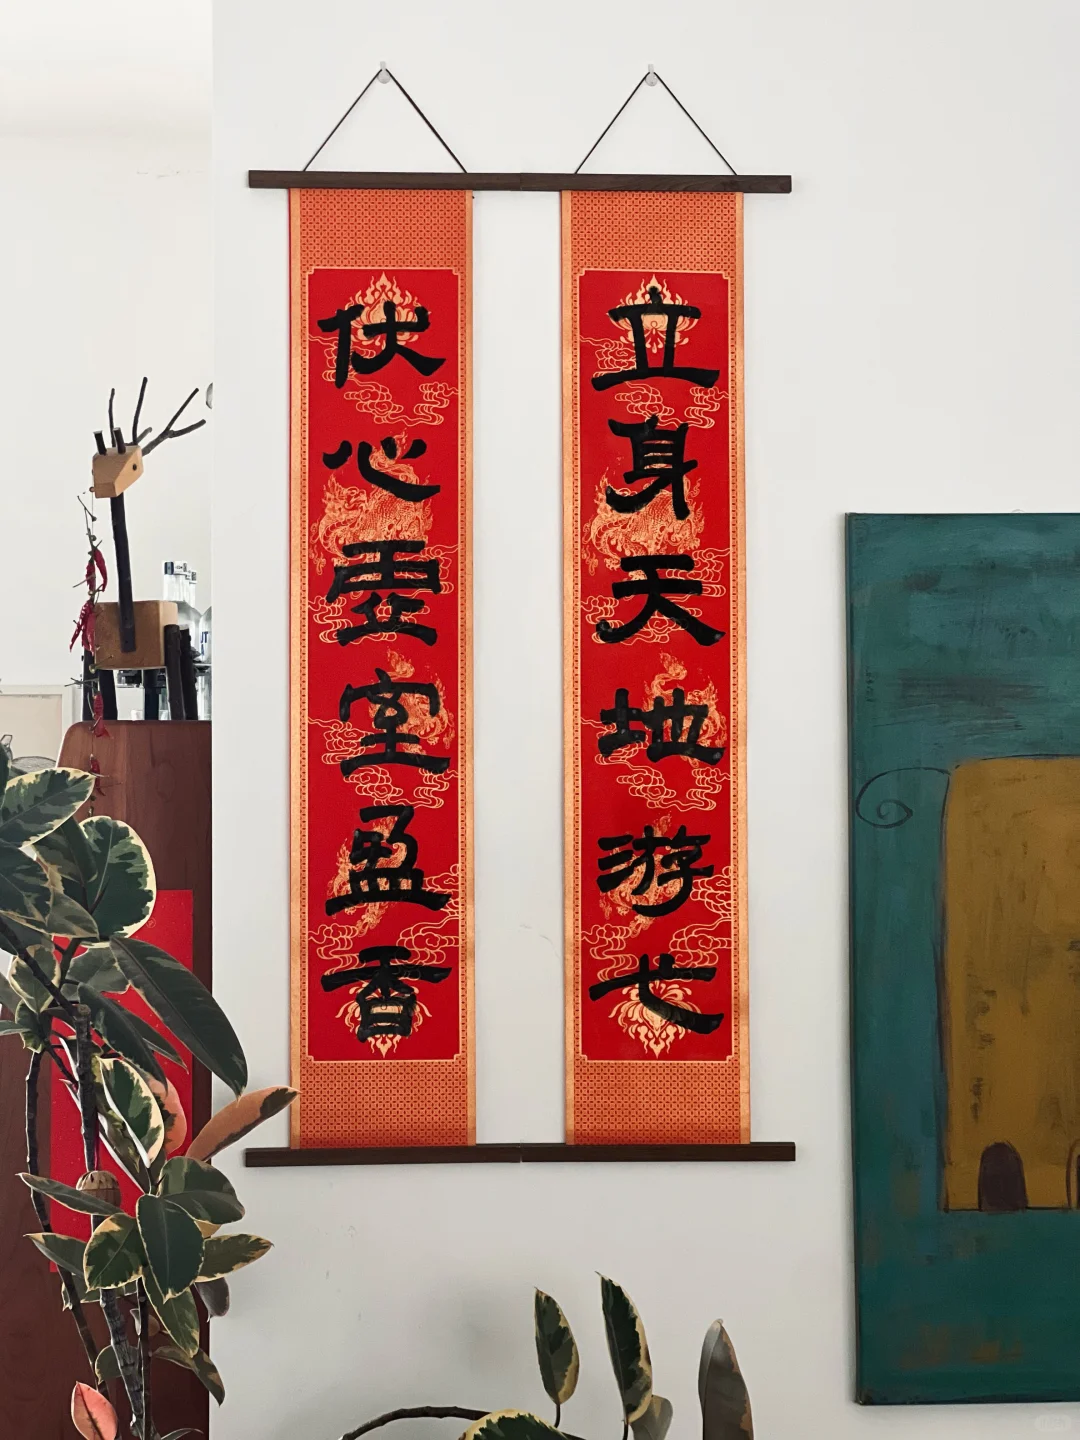 立身天地游弋
伏心虚室盈香